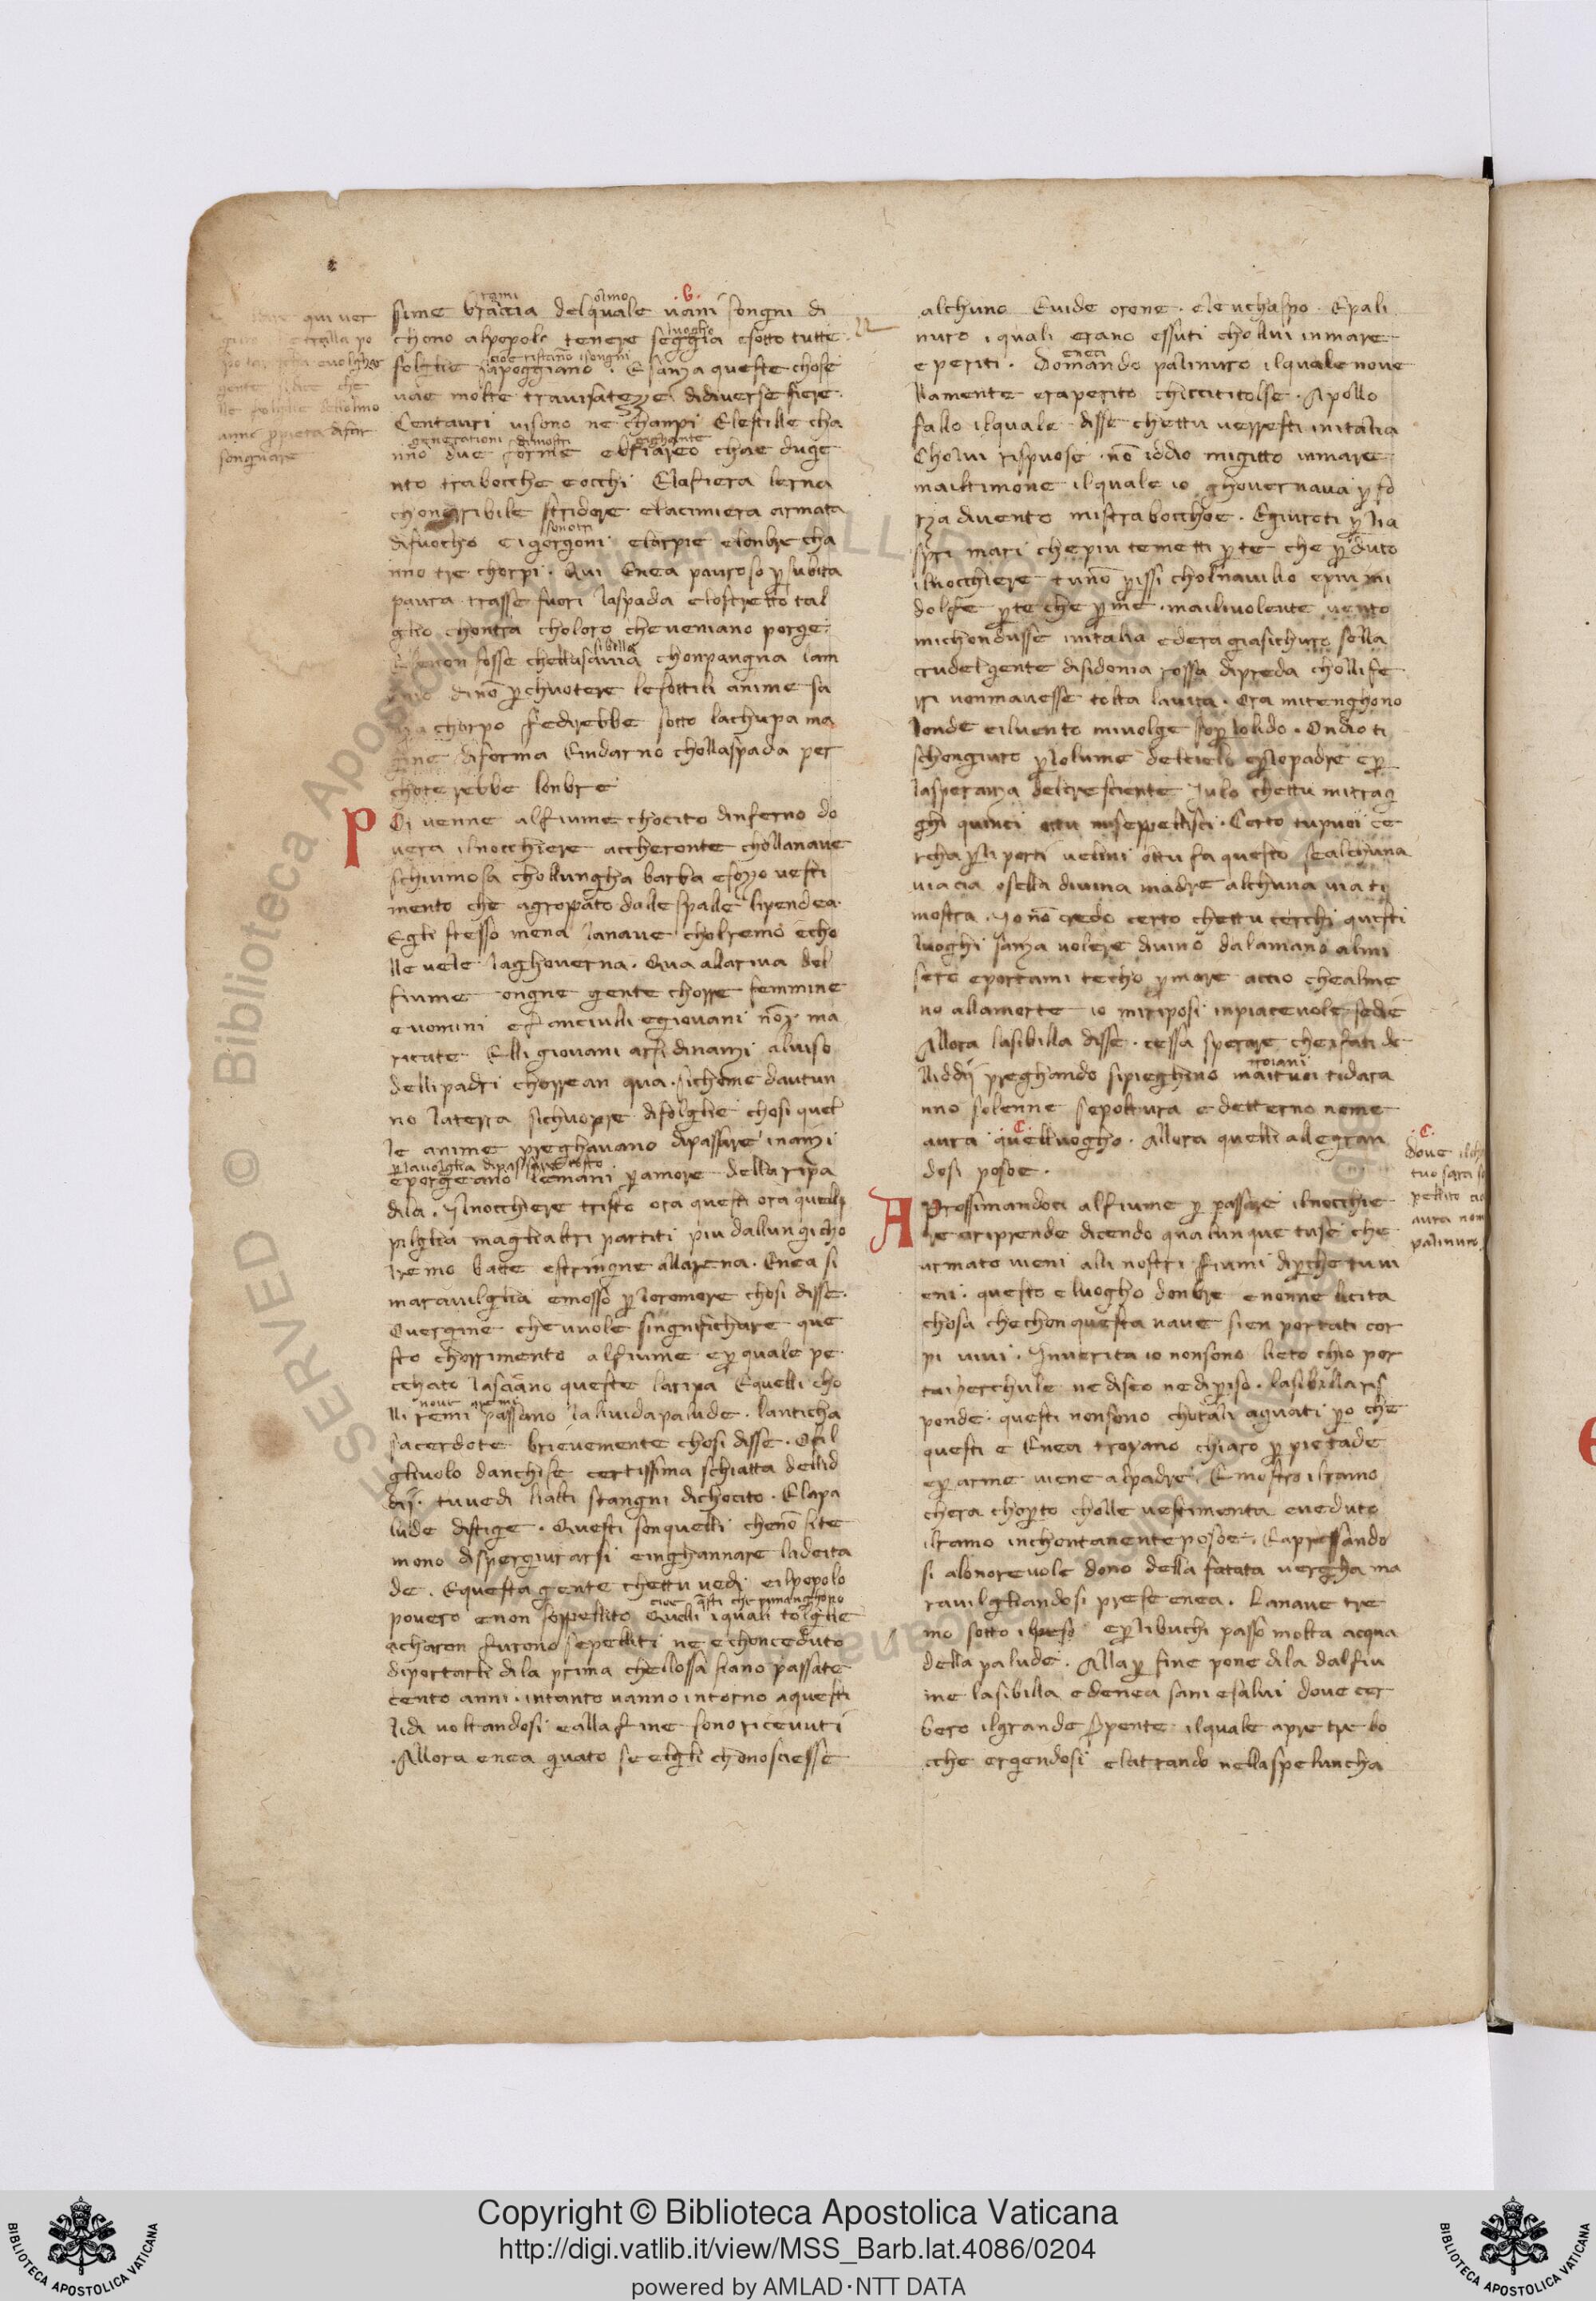 rami olmo .b.
sime braccia delquale uani songni di
luogho
chono alpopolo tenere seggia esotto tutte
cioe ristano isongni
folglie sapoggiano . E sanza queste chose
uae molte trauisatezze didiuerse fiere.
Centauri uisono ne champi Elescille cha
generationi dimostri gighante
nno due forme ebriareo chae duge
nto trabocche eocchi Elafiera lerna
chonorribile stridore elacimiera armata
sonotri
difuocho eigorgoni elarpie elonbre cha
nno tre chorpi . Qui Enea pauroso p subita
paura trasse fuori laspada elostretto tal
glio chontra choloro cheueniano porge.
sibilla
Esenon fosse chellasauia chonpangna lam
dinō pchuotere lesottili anime sa
nza chorpo fedirebbe sotto lachupa ma
gine diforma Eindarno chollaspada per
choterebbe lonbre
POi uenne alfiume chocito dinferno do
uera ilnocchiere accheronte chollanaue
schiumosa chollungha barba esozzo uesti
mento che agroppato dalle spalle lipendea.
Egli stesso mena lanaue cholremo echo
lle uele laghouerna . Qua allariua del
fiume ongne gente chorre femmine
euomini efanciulli egiouani nō ma
ritate Elli giovani arsi dinanzi aluiso
dellipadri chorrean qua . sichome dautun
no laterra sichuopre difolglie chosi quel
le anime preghauano dipassare inanzi
plauolglia dipassare tosto
eporgeano lemani p amore della ripa
dila . Ilnocchiere tristo ora questi ora quelli
pilglia maglialtri partiti piu dallungi cho
lremo batte estringne allarena . Enea si
marauilglia emosso p loromore chosi disse.
Ouergine cheuuole singnifichare que
sto chorrimento alfiume ep quale pe
cchato lasciano queste laripa Equelli cho
lli remi passano laliuida palude . lanticha
sacerdote brieuemente chosi disse . Ofil
gliuolo danchise certissima schiatta dellid
dij . tuuedi lialti stangni dichocito . Elapa
lude distige . Questi sonquelli chenō lite
mono dispergiurarsi einghannare ladeita
de . Equesta gente chettu uedi eilpopolo
cioe qsti che rimanghono
pouero enon soppellito Quelli iquali tolglie
acharon furono sepelliti ne echonceduto
diportarli dila prima chellossa siano passate
cento anni . intanto uanno intorno aquesti
lidi uoltandosi eallafine sono riceuuti
.Allora enea guato se elgli chonosciesse
alchuno Euide orone . eleuchaspo . Epali
nuro iquali erano essuti chollui inmare
enea
eperiti . Domando palinuro ilquale noue
llamente eraperito chiccititolse . Apollo
fallo ilquale disse chettu uerresti initalia
Cholui rispuose . nō iddio migitto inmare.
mailtimone ilquale io ghouernaua p fo
rza diuento mistrabocchoe . Egiuroti p lia
spri mari chepiu temetti p te che pduto
ilnocchiere tunō pissi cholnauilio epiu mi
dolse pte che pme . mailuiolente uento
michondusse initalia edera giasichuro sella
crudelgente disidonia rossa dipreda cholli fe
rri nonmauesse tolta lauita . Ora mitenghono
londe eiluento miuolge sopr lolido . Ondio ti
schongiuro plolume delcielo eplopadre ep
lasperanza delcresciente Iulo chettu mitrag
ghi quinci ottu misoppellisci . Certo tupuoi ce
rcha pli porti uelini ottu fa questo sealchuna
uia cia osella diuina madre alchuna uia ti
mostra . Io nō credo certo chettu cerchi questi
luoghi sanza uolere diuino dalamano almi
sero eportami techo pmare accio chealme
no allamorte io miriposi inpiaceuole sedie
Allora lasibilla disse . cessa sperare cheifati de
troiani
lliddij preghando sipieghino maituoi tidara
nno solenne sepoltura edetterno nome
.C.
aura quelluogho . Allora quelli allegran
dosi posoe .
AProssimandoci alfiume p passare ilnocchie
re ciriprende dicendo qualunque tuse che
armato uieni alli nostri fiumi dipche tuui
eni . questo e luogho donbre enonne licita
chosa chechonquesta naue sien portati cor
pi uiui . Inuerita io nonsono lieto chio por
tai herchule ne diseo ne dipiso . lasibilla ris
ponde . questi nonsono chotali aguati po che
questi e Enea troyano chiaro p pietade
ep arme uiene alpadre . E mostro ilramo
chera chopto cholle uestimenta eueduto
ilramo inchontanente posoe . Eapressando
si alonoreuole dono della fatata uergha ma
rauilgliandosi prese enea . Lanaue tre
mo sotto ilpeso eplibuchi passo molta acqua
della palude . Allap fine pone dila dalfiu
me lasibilla edenea sani esalui doue cer
bero ilgrande spente ilquale apre tre bo
cche ergendosi elatrando nellaspeluncha
.C.
doue ilch
tuo sara se
pellito
aura nom
palinuro
Copyright © Biblioteca Apostolica Vaticana
http://digi.vatlib.it/view/MSS_Barb.lat.4086/0204
powered by AMLAD·NTT DATA
BIBLIOTECA APOSTOLICA VATICANA
BIBLIOTECA APOSTOLICA VATICANA